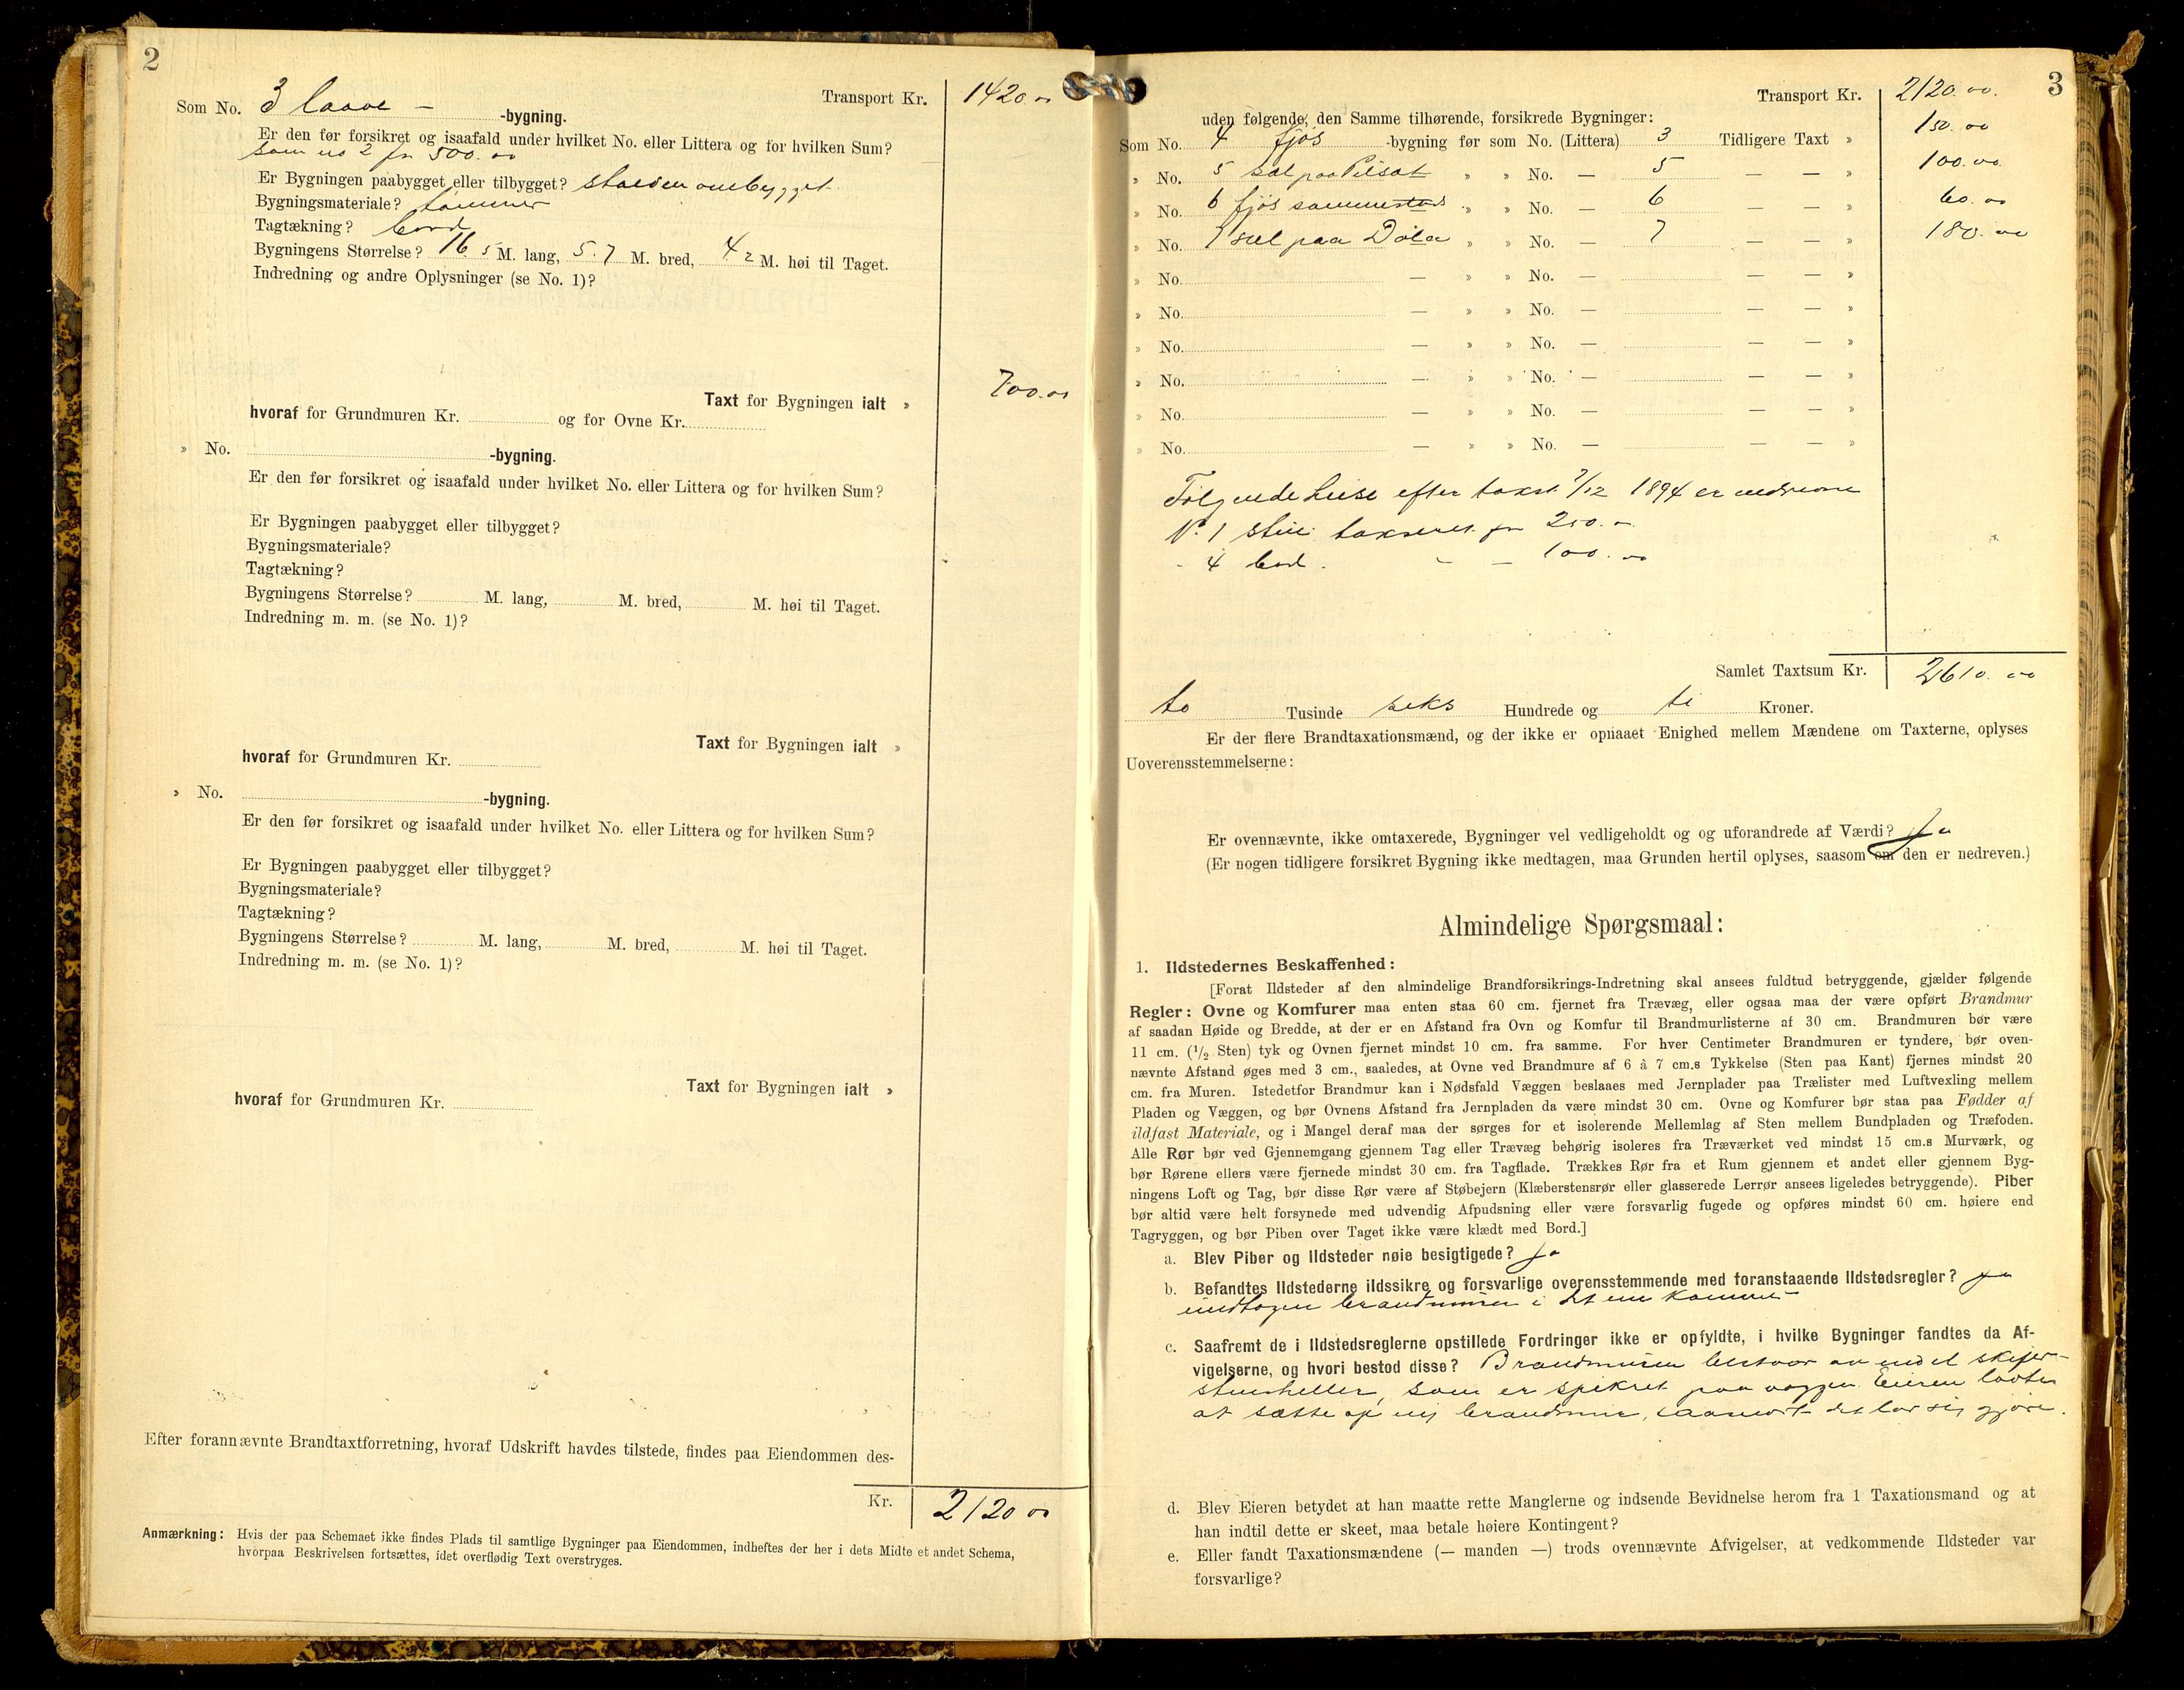 2
Transport Kr. 1420.00
Som No. 3 laave - -bygning.
Er den før forsikret og isaafald under hvilket No. eller Littera og for hvilken Sum?
som no 2 for 500.00
Er Bygningen paabygget eller tilbygget? stalden ombygget.
Bygningsmateriale? tømmer
Tagtækning? bord
Bygningens Størrelse? 16.5 M. lang, 5.7 M. bred, 4 2 M. høi til Taget.
Indredning og andre Oplysninger (se No. 1)?
Taxt for Bygningen ialt » 700.00
hvoraf for Grundmuren Kr. og for Ovne Kr.
» No. -bygning.
Er den før forsikret og isaafald under hvilket No. eller Littera og for hvilken Sum?
Er Bygningen paabygget eller tilbygget?
Bygningsmateriale?
Tagtækning?
Bygningens Størrelse? M. lang, M. bred, M. høi til Taget.
Indredning m. m. (se No. 1)?
Taxt for Bygningen ialt »
hvoraf for Grundmuren Kr.
» No. -bygning.
Er den før forsikret og isaafald under hvilket No. eller Littera og for hvilken Sum?
Er Bygningen paabygget eller tilbygget?
Bygningsmateriale?
Tagtækning?
Bygningens Størrelse? M. lang, M. bred, M. høi til Taget.
Indredning m. m. (se No. 1)?
Taxt for Bygningen ialt »
hvoraf for Grundmuren Kr.
Efter forannævnte Brandtaxtforretning, hvoraf Udskrift havdes tilstede, findes paa Eiendommen des-
Kr. 2120 00
Anmærkning: Hvis der paa Schemaet ikke findes Plads til samtlige Bygninger paa Eiendommen, indheftes der her i dets Midte et andet Schema,
hvorpaa Beskrivelsen fortsættes, idet overflødig Text overstryges.
3
Transport Kr. 2120.00.
uden følgende, den Samme tilhørende, forsikrede Bygninger:
Som No. 4 fjøs -bygning før som No. (Littera) 3 Tidligere Taxt » 150.00
» No. 5 sel paa Pilsæt » » No. — 5 — — » 100.00
» No. 6 fjøs sammesteds » » No. — 6 — — » 60.00
» No. 7 sel paa Døla » » No. — 7 — — » 180.00
» No. — » » No. — — — »
» No. — » » No. — — — »
» No. — » » No. — — — »
» No. — » » No. — — — »
» No. — » » No. — — — »
» No. — » » No. — — — »
Følgende huse efter takst 7/12 1894 er nedrevne
No. 1 stue takseret for 250.00
- 4 bod. - - 100.00
Samlet Taxtsum Kr. 2610.00
to Tusinde seks Hundrede og ti Kroner.
Er der flere Brandtaxationsmænd, og der ikke er opnaaet Enighed mellem Mændene om Taxterne, oplyses
Uoverensstemmelserne:
Er ovennævnte, ikke omtaxerede, Bygninger vel vedligeholdt og og uforandrede af Værdi? Ja
(Er nogen tidligere forsikret Bygning ikke medtagen, maa Grunden hertil oplyses, saasom om den er nedreven.)
Almindelige Spørgsmaal:
1. Ildstedernes Beskaffenhed:
[Forat Ildsteder af den almindelige Brandforsikrings-Indretning skal ansees fuldtud betryggende, gjælder følgende
Regler: Ovne og Komfurer maa enten staa 60 cm. fjernet fra Trævæg, eller ogsaa maa der være opført Brandmur
af saadan Høide og Bredde, at der er en Afstand fra Ovn og Komfur til Brandmurlisterne af 30 cm. Brandmuren bør være
11 cm. (1/2 Sten) tyk og Ovnen fjernet mindst 10 cm. fra samme. For hver Centimeter Brandmuren er tyndere, bør oven-
nævnte Afstand øges med 3 cm., saaledes, at Ovne ved Brandmure af 6 à 7 cm.s Tykkelse (Sten paa Kant) fjernes mindst 20
cm. fra Muren. Istedetfor Brandmur kan i Nødsfald Væggen beslaaes med Jernplader paa Trælister med Luftvexling mellem
Pladen og Væggen, og bør Ovnens Afstand fra Jernpladen da være mindst 30 cm. Ovne og Komfurer bør staa paa Fødder af
ildfast Materiale, og i Mangel deraf maa der sørges for et isolerende Mellemlag af Sten mellem Bundpladen og Træfoden.
Alle Rør bør ved Gjennemgang gjennem Tag eller Trævæg behørig isoleres fra Træværket ved mindst 15 cm.s Murværk, og
bør Rørene ellers være fjernede mindst 30 cm. fra Tagflade. Trækkes Rør fra et Rum gjennem et andet eller gjennem Byg-
ningens Loft og Tag, bør disse Rør være af Støbejern (Klæberstensrør eller glasserede Lerrør ansees ligeledes betryggende). Piber
bør altid være helt forsynede med udvendig Afpudsning eller være forsvarlig fugede og opføres mindst 60 cm. høiere end
Tagryggen, og bør Piben over Taget ikke være klædt med Bord.]
a. Blev Piber og Ildsteder nøie besigtigede? Ja
b. Befandtes Ildstederne ildssikre og forsvarlige overensstemmende med foranstaaende Ildstedsregler? ja
undtagen brandmuren i det ene kammer
c. Saafremt de i Ildstedsreglerne opstillede Fordringer ikke er opfyldte, i hvilke Bygninger fandtes da Af-
vigelserne, og hvori bestod disse? Brandmuren bestaar av endel skifer-
stensheller, som er spikret paa væggen. Eieren lovte
at sætte op ny brandmur, saasnart det lar sig gjøre.
d. Blev Eieren betydet at han maatte rette Manglerne og indsende Bevidnelse herom fra 1 Taxationsmand og at
han indtil dette er skeet, maa betale høiere Kontingent?
e. Eller fandt Taxationsmændene (— manden —) trods ovennævnte Afvigelser, at vedkommende Ildsteder var
forsvarlige?